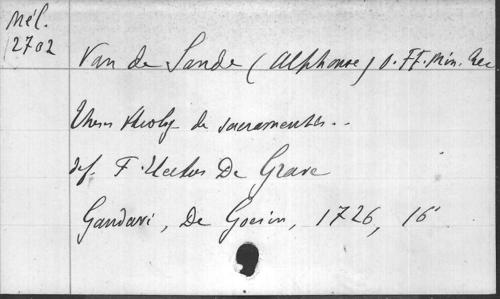 Mél.
2702
Van de Sande (Alphonse) O. FF. Min. Rec
Theses theolog de sacramentis..
def. F. De Grave
Gandavi, De Goesin, 1726, 16°